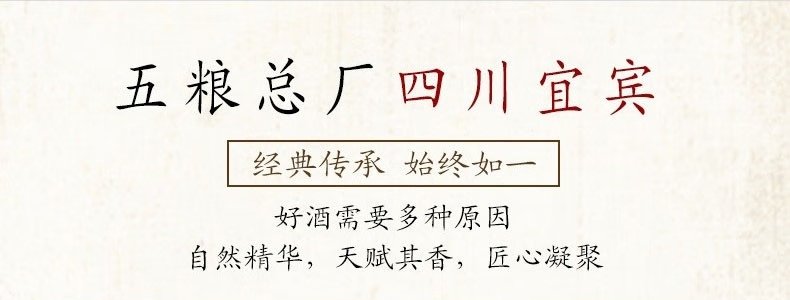 五粮总厂四川宜宾
经典传承 始终如一
好酒需要多种原因
自然精华，天赋其香，匠心凝聚